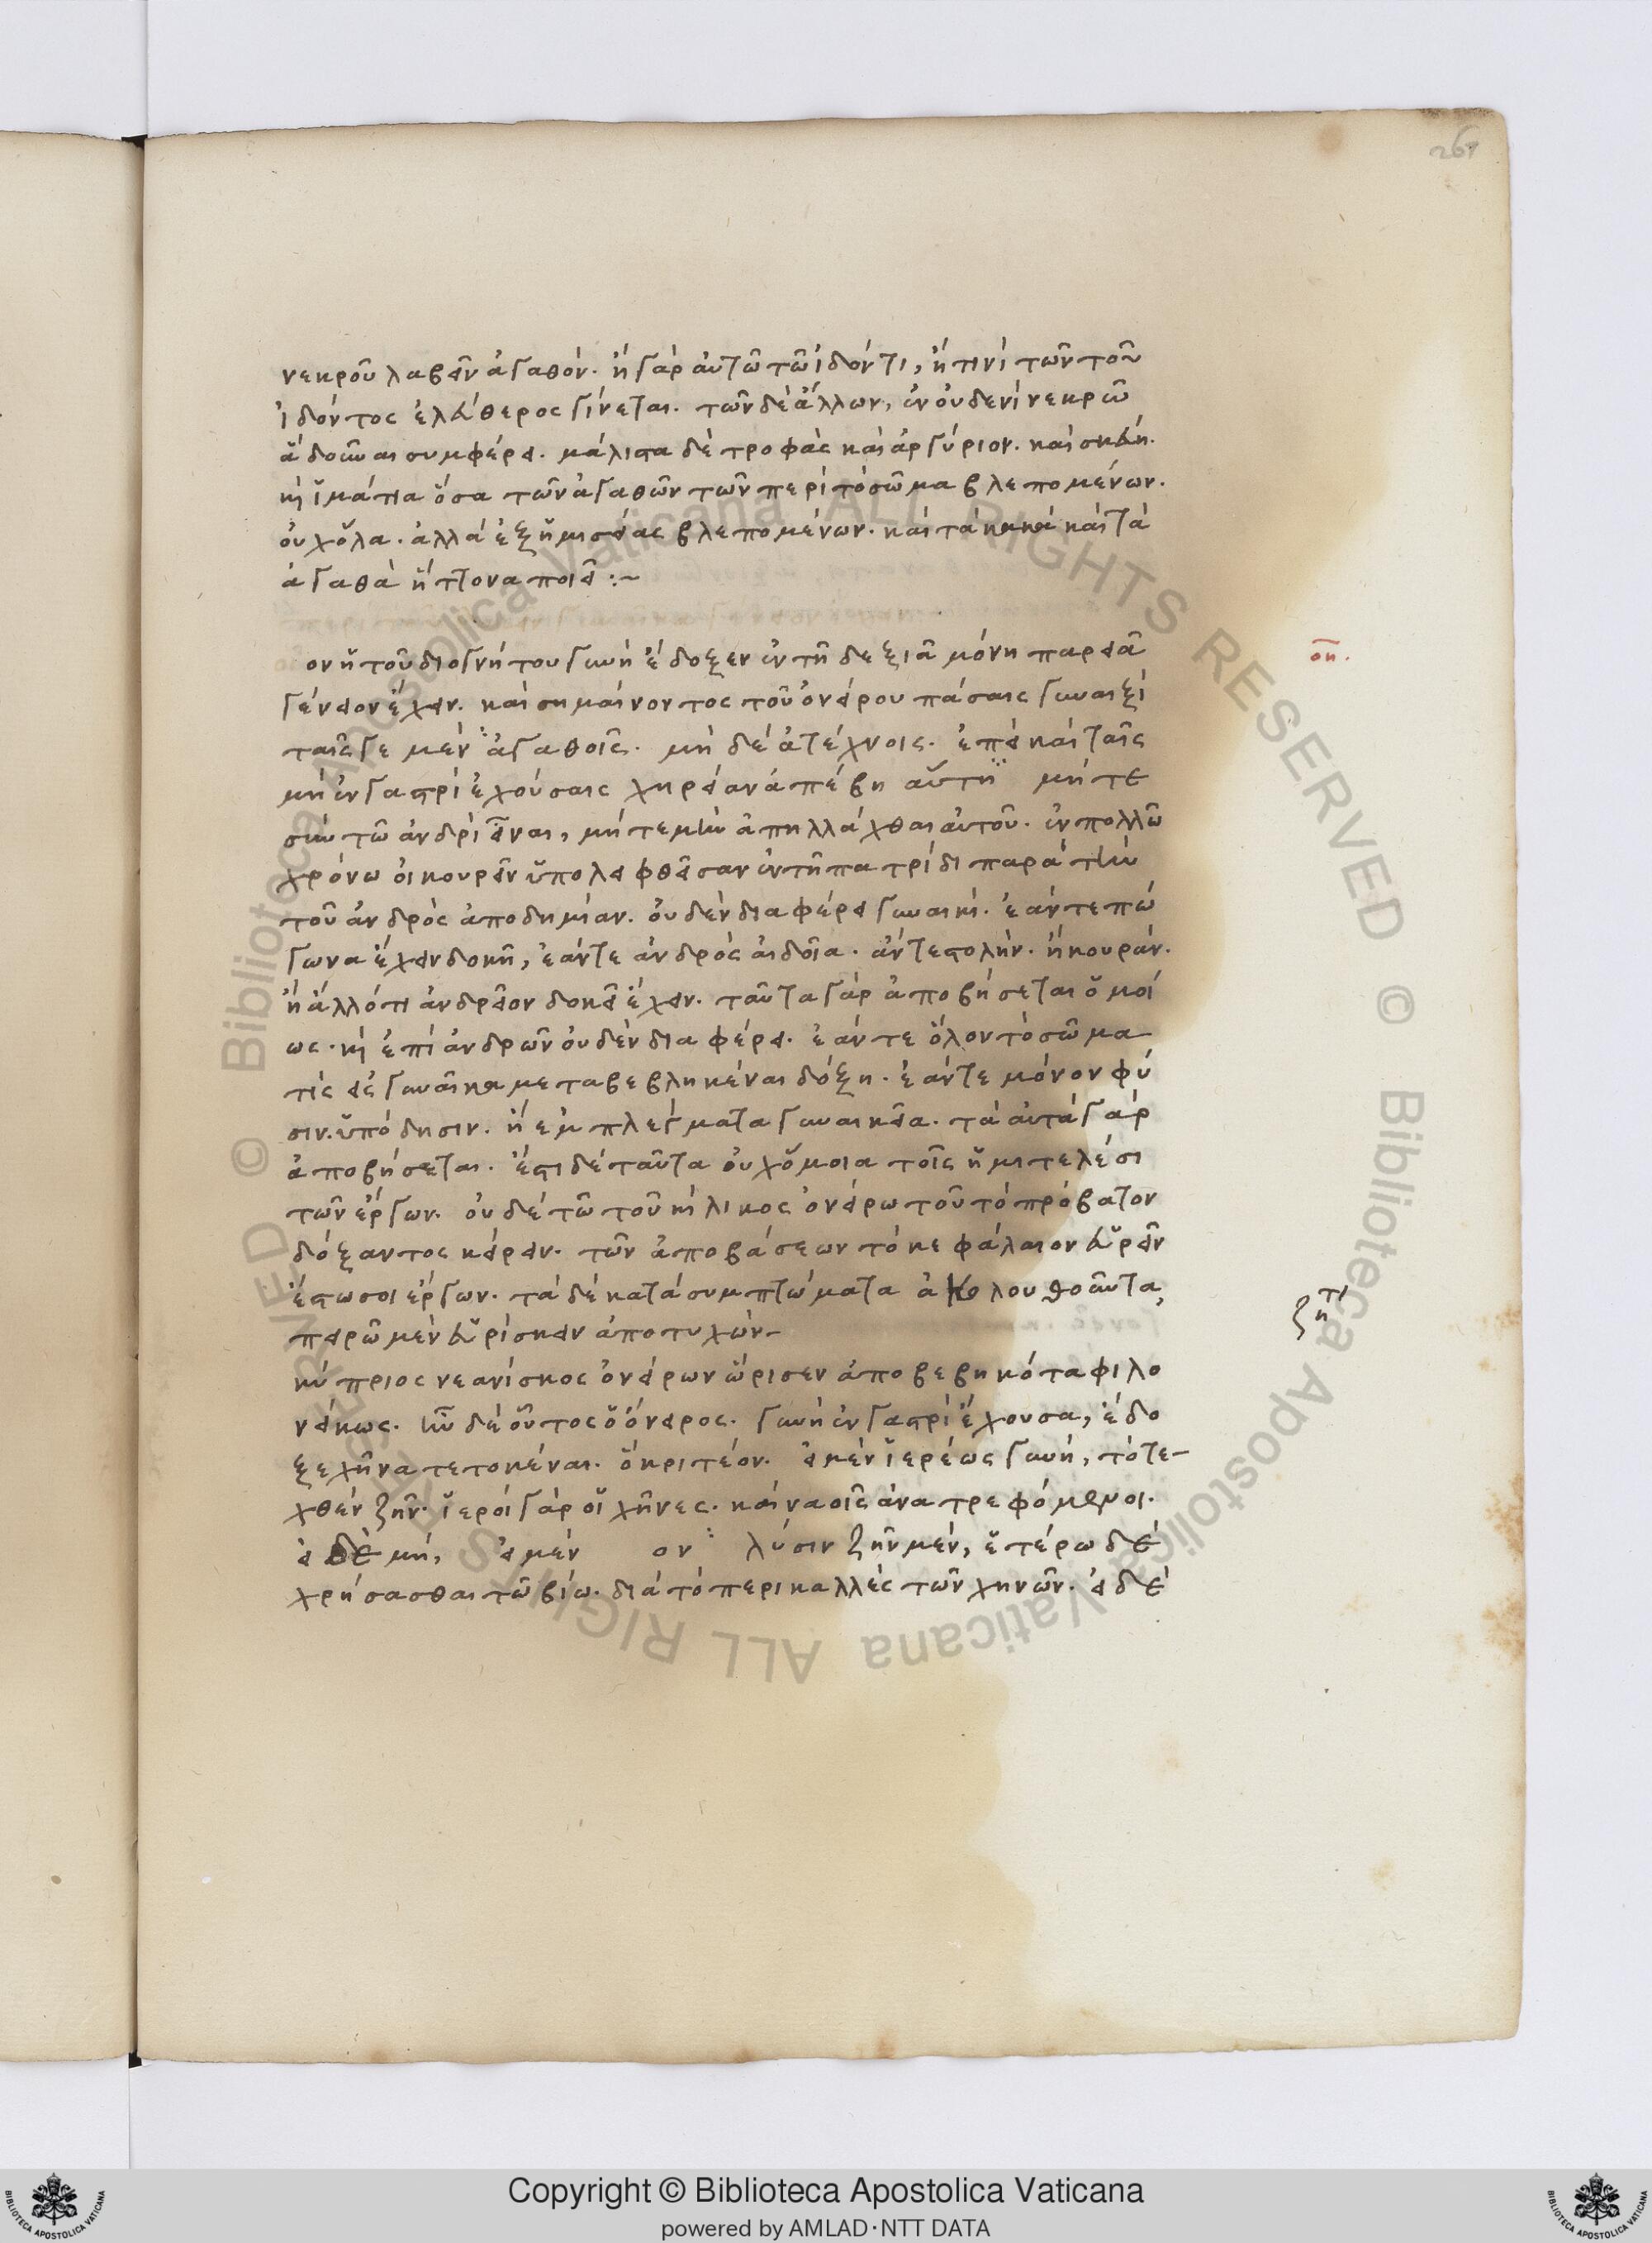 261
νεκροῦ λαβεῖν ἀγαθόν. ἢ γὰρ αὐτῶ τῶ ἰδόντι, ἤ τινι τῶν τοῦ
ἰδόντος ἐλεύθερος γίνεται. τῶν δὲ ἄλλων, ἐν οὐδενὶ νεκρῶ
ἃ δοῦναι συμφέρει. μάλιστα δὲ τροφὰς καὶ ἀργύριον. καὶ σκεύη.
κὶ ἱμάτια ὅσα τῶν ἀγαθῶν τῶν περὶ τὸ σῶμα βλεπομένων.
οὐχ ὅλα. ἀλλὰ ἐξ ἡμισείας βλεπομένων. καὶ τὰ κακὰ καὶ τὰ
ἀγαθὰ ἥττονα ποιεῖ :~
ον ἡ τοῦ διογνήτου γυνὴ ἔδοξεν ἐν τῆ δεξιᾶ μόνη παρειᾶ
γένειον ἔχειν. καὶ σημαίνοντος τοῦ ὀνείρου πάσαις γυναιξὶ
ταῖς γε μὲν ἀγαθοῖς. μὴ δὲ ἀτέχνοις. ἐπεὶ καὶ ταῖς
μὴ ἐν γαστρὶ ἐχούσαις χηρείαν ἀπέβη αὕτη μήτε
σὺν τῶ ἀνδρὶ εἶναι, μήτε μὴν ἀπηλλάχθαι αὐτοῦ. ἐν πολλῶ
χρόνω οἰκουρεῖν ὑπολειφθεῖσαν ἐν τῆ πατρίδι παρὰ τὴν
τοῦ ἀνδρὸς ἀποδημίαν. οὐδὲν διαφέρει γυναικί. ἐάν τε πώ
γωνα ἔχειν δοκῆ, ἐάν τε ἀνδρὸς αἰδοῖα. ἄν τε στολὴν. ἢ κουράν.
ἢ ἄλλό τι ἀνδρεῖον δοκεῖ ἔχειν. ταῦτα γὰρ ἀποβήσεται ὁμοί
ως. κὶ ἐπὶ ἀνδρῶν οὐδὲν διαφέρει. ἐάν τε ὅλον τὸ σῶμα
τὶς εἰς γυναῖκα μεταβεβληκέναι δόξη. ἐάν τε μόνον φύ
σιν. ὑπόδησιν. ἢ ἐμπλέγματα γυναικεῖα. τὰ αὐτὰ γὰρ
ἀποβήσεται. ἔστι δὲ ταῦτα οὐχ ὅμοια τοῖς ἡμιτελέσι
τῶν ἔργων. οὐδὲ τῶ τοῦ κήλικος ὀνείρω τοῦ τὸ πρόβατον
δόξαντος κείρειν. τῶν ἀποβάσεων τὸ κεφάλαιον εὑρεῖν
ἔστω σοι ἔργων. τὰ δὲ κατὰ συμπτώματα ἀκολουθοῦντα,
πειρῶ μὲν εὑρίσκειν ἀποτυχών-
κύπριος νεανίσκος ὀνείρων ὥρισεν ἀποβεβηκότα φιλο
νείκως. ἦν δὲ οὗτος ὁ ὄνειρος. γυνὴ ἐν γαστρὶ ἔχουσα, ἔδο
ξε χῆνα τετοκέναι. ὃ κριτέον. εἰ μὲν ἱερέως γυνή, τὸ τε-
χθὲν ζῆν. ἱεροὶ γὰρ οἱ χῆνες. καὶ ναοῖς ἀνατρεφόμενοι.
εἰ δὲ μή, εἰ μὲν ον λύσιν ζῆν μέν, ἑτέρω δὲ
χρήσασθαι τῶ βίω. διὰ τὸ περικαλλὲς τῶν χηνῶν. εἰ δὲ
ση.
ζητ
© Biblioteca Apostolica Vaticana ALL RIGHTS RESERVED
Copyright © Biblioteca Apostolica Vaticana
powered by AMLAD·NTT DATA
BIBLIOTECA APOSTOLICA VATICANA
BIBLIOTECA APOSTOLICA VATICANA